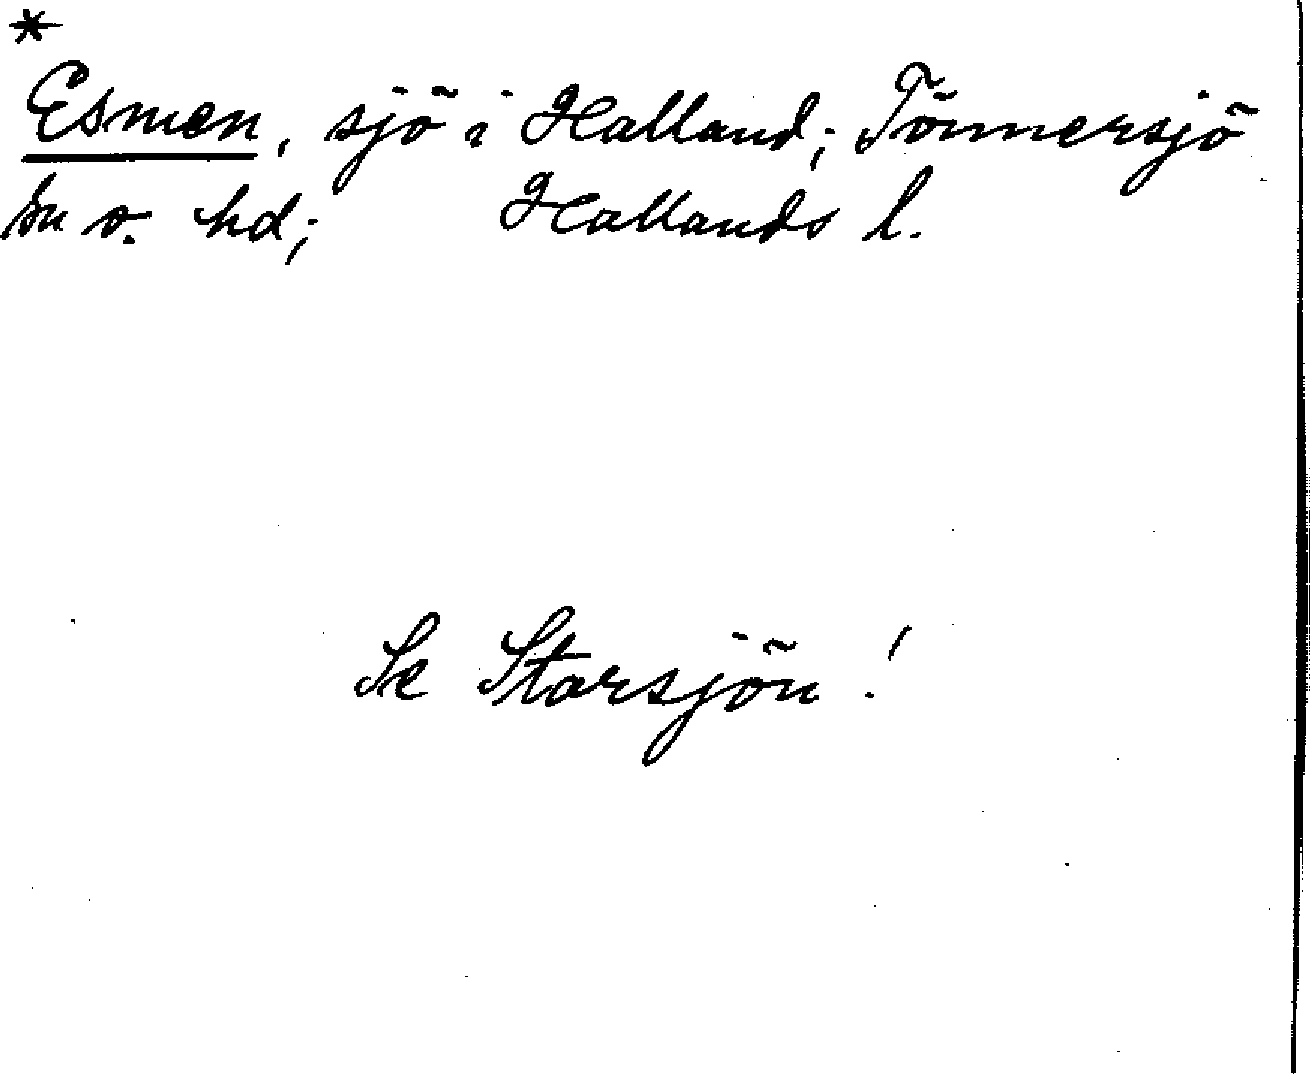 *
Esmen, sjö i Halland; Tönnersjö
sn o. hd; Hallands l.
Se Storsjön!